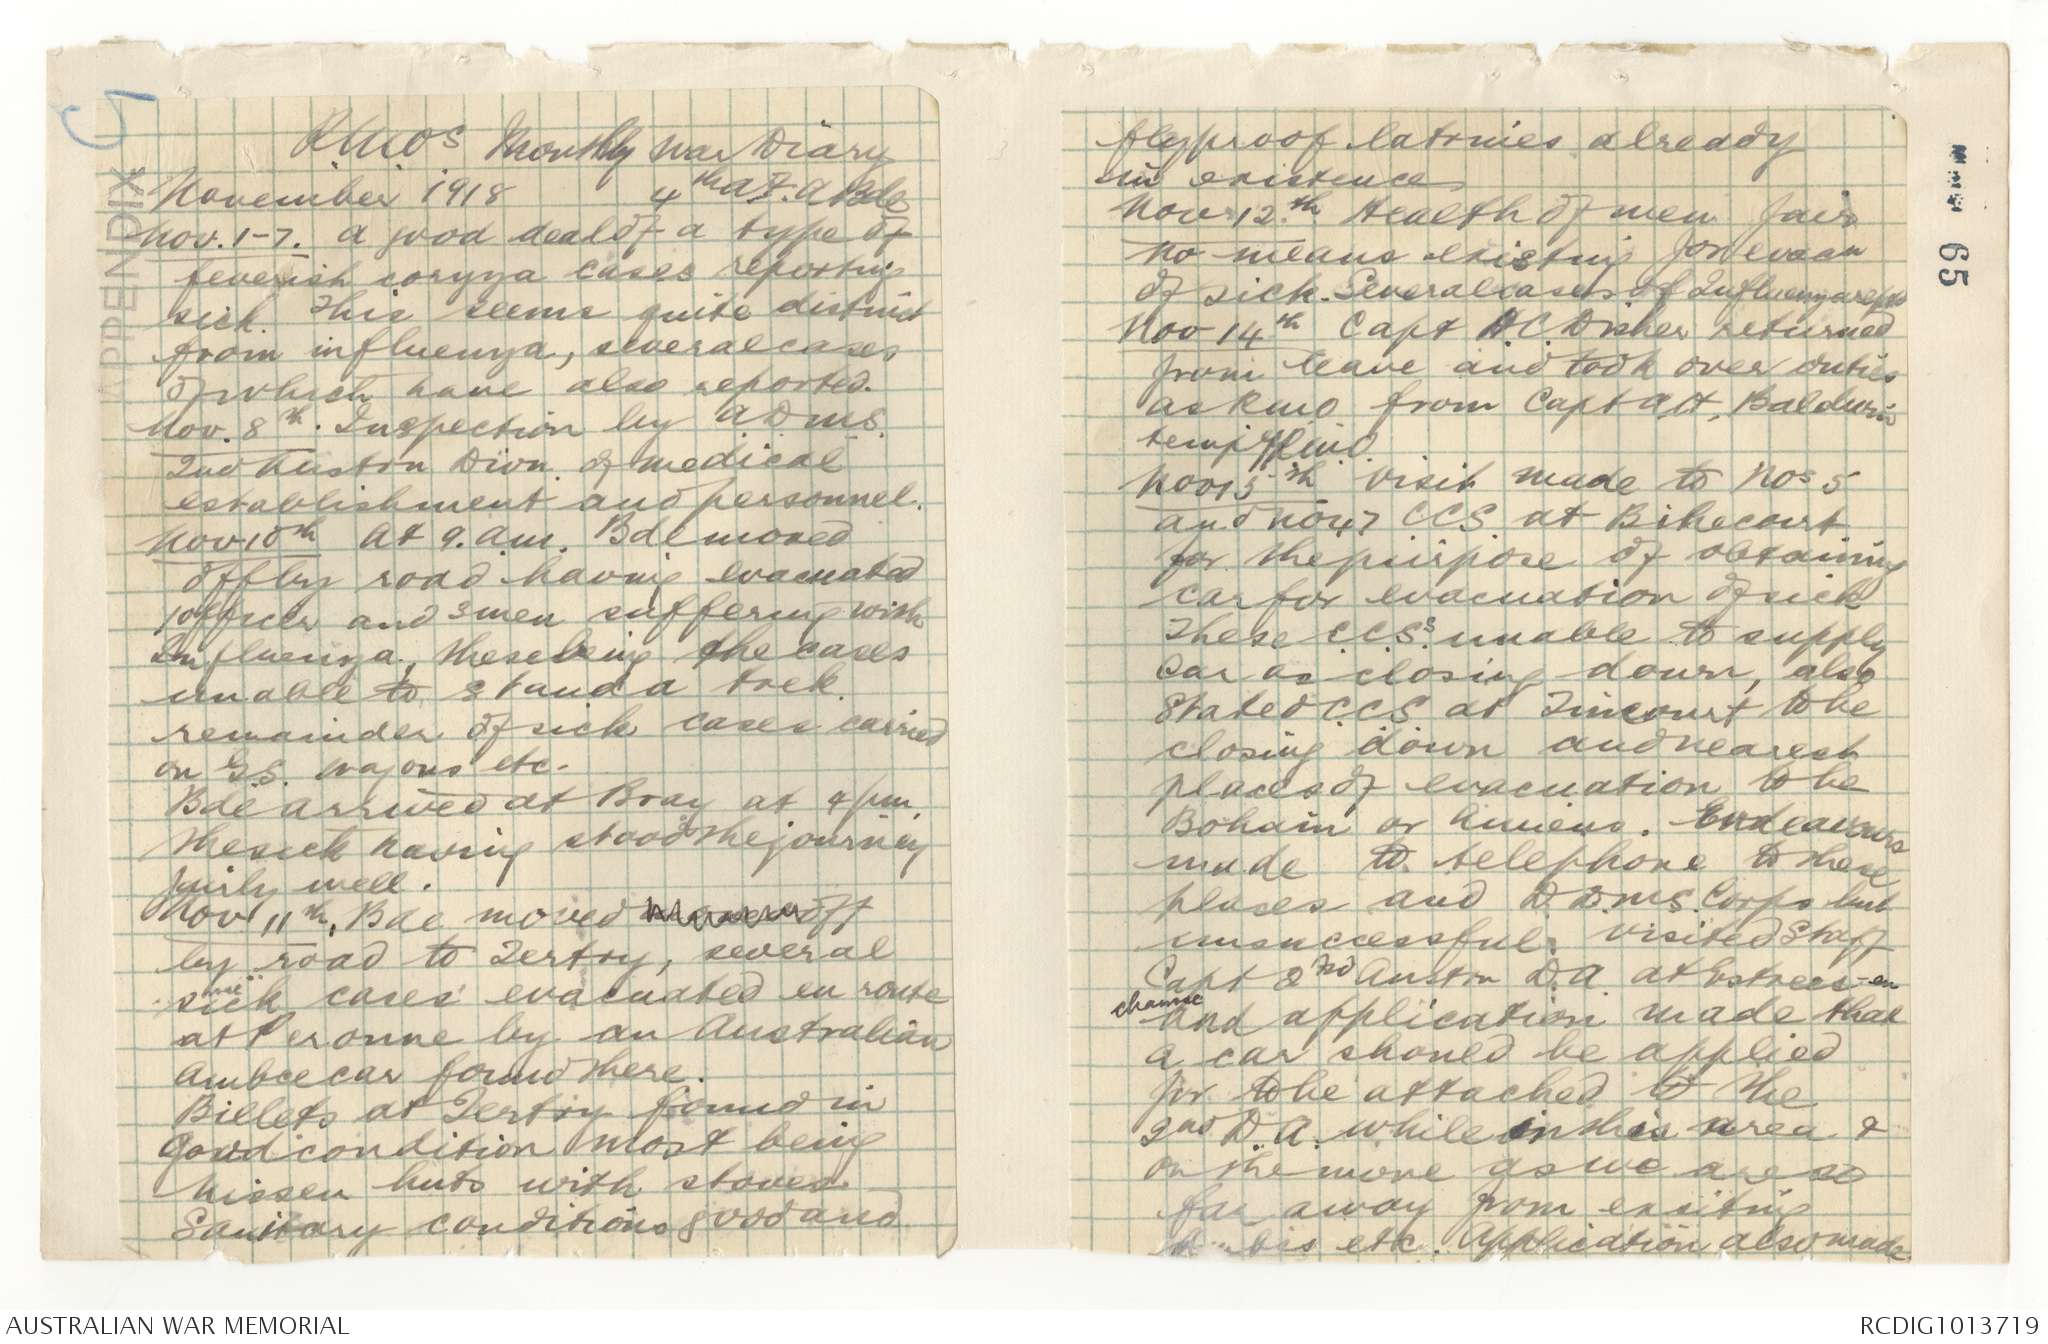 5
APPENDIX
RMOs Monthly War Diary
November 1918 4th A.F.A Bde
Nov. 1-7. A good deal of a type of
feverish coryza cases reporting
sick. This seems quite distinct
from influenza, several cases
of which have also reported.
Nov. 8th. Inspection by A.D.M.S.
2nd Austrn Divn of medical
establishment and personnel.
Nov 10th At 9. a.m. Bde moved
off by road having evacuated
1 officer and 3 men suffering with
Influenza, these being the cases
unable to stand a trek.
remainder of sick cases carried
on G.S. wagons etc.
Bde arrived at Bray at 4 pm.
the sick having stood the journey
fairly well.
Nov 11th, Bde moved off
by road to Tertry, several
sick cases evacuated en route
at Peronne by an Australian
Ambce car found there.
Billets at Tertry found in
good condition most being
nissen huts with stoves
Sanitary conditions good and
flyproof latrines already
in existence
Nov 12th Health of men fair
no means existing for evacn
of sick. Several cases of Influenza reptd
Nov 14th Capt H.C. Disher returned
from leave and took over duties
as RMO from Capt A.H. Baldwin
temp RMO.
Nov 15th visit made to Nos 5
and No 47 CCS at Bihecourt
for the purpose of obtaining
car for evacuation of sick
These C.C.S.s unable to supply
car as closing down, also
stated C.C.S. at Tincourt to be
closing down and nearest
places of evacuation to be
Bohain or Amiens. Endeavours
made to telephone to these
places and D.D.M.S. Corps but
unsuccessful. Visited Staff
Capt 2nd Austn D.A. at Estrees-en
chausse
and application made that
a car should be applied
for to be attached to the
2nd D.A. while in this area &
on the move as we are so
far away from existing
etc. Application also made
65
AUSTRALIAN WAR MEMORIAL
RCDIG1013719